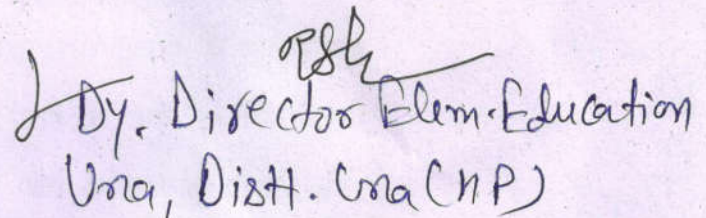 Dy. Director Elem. Education
Una, Distt. Una (HP)